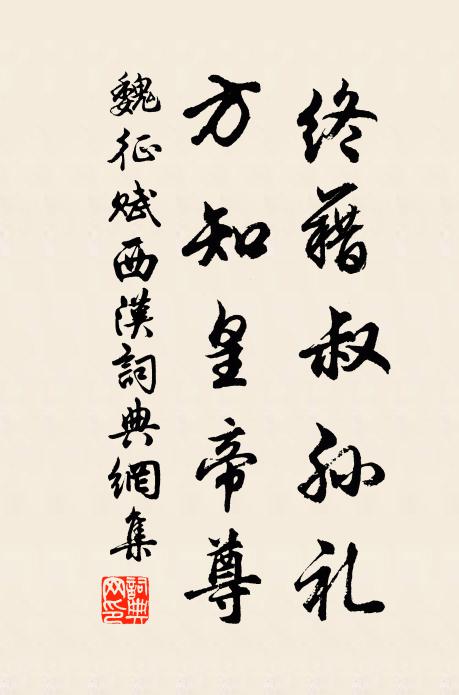 终藉叔孙礼
方知皇帝尊
魏征赋西漢詞典網集
詞典网印